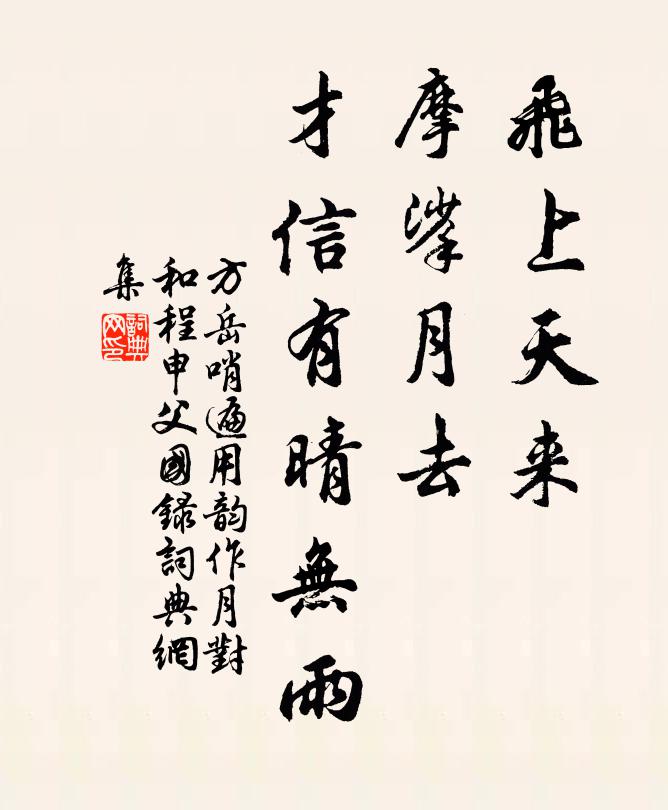 飛上天来
摩挲月去
才信有晴無雨
方岳哨遍用韵作月對
和程申父國録詞典網
集
詞典
网印